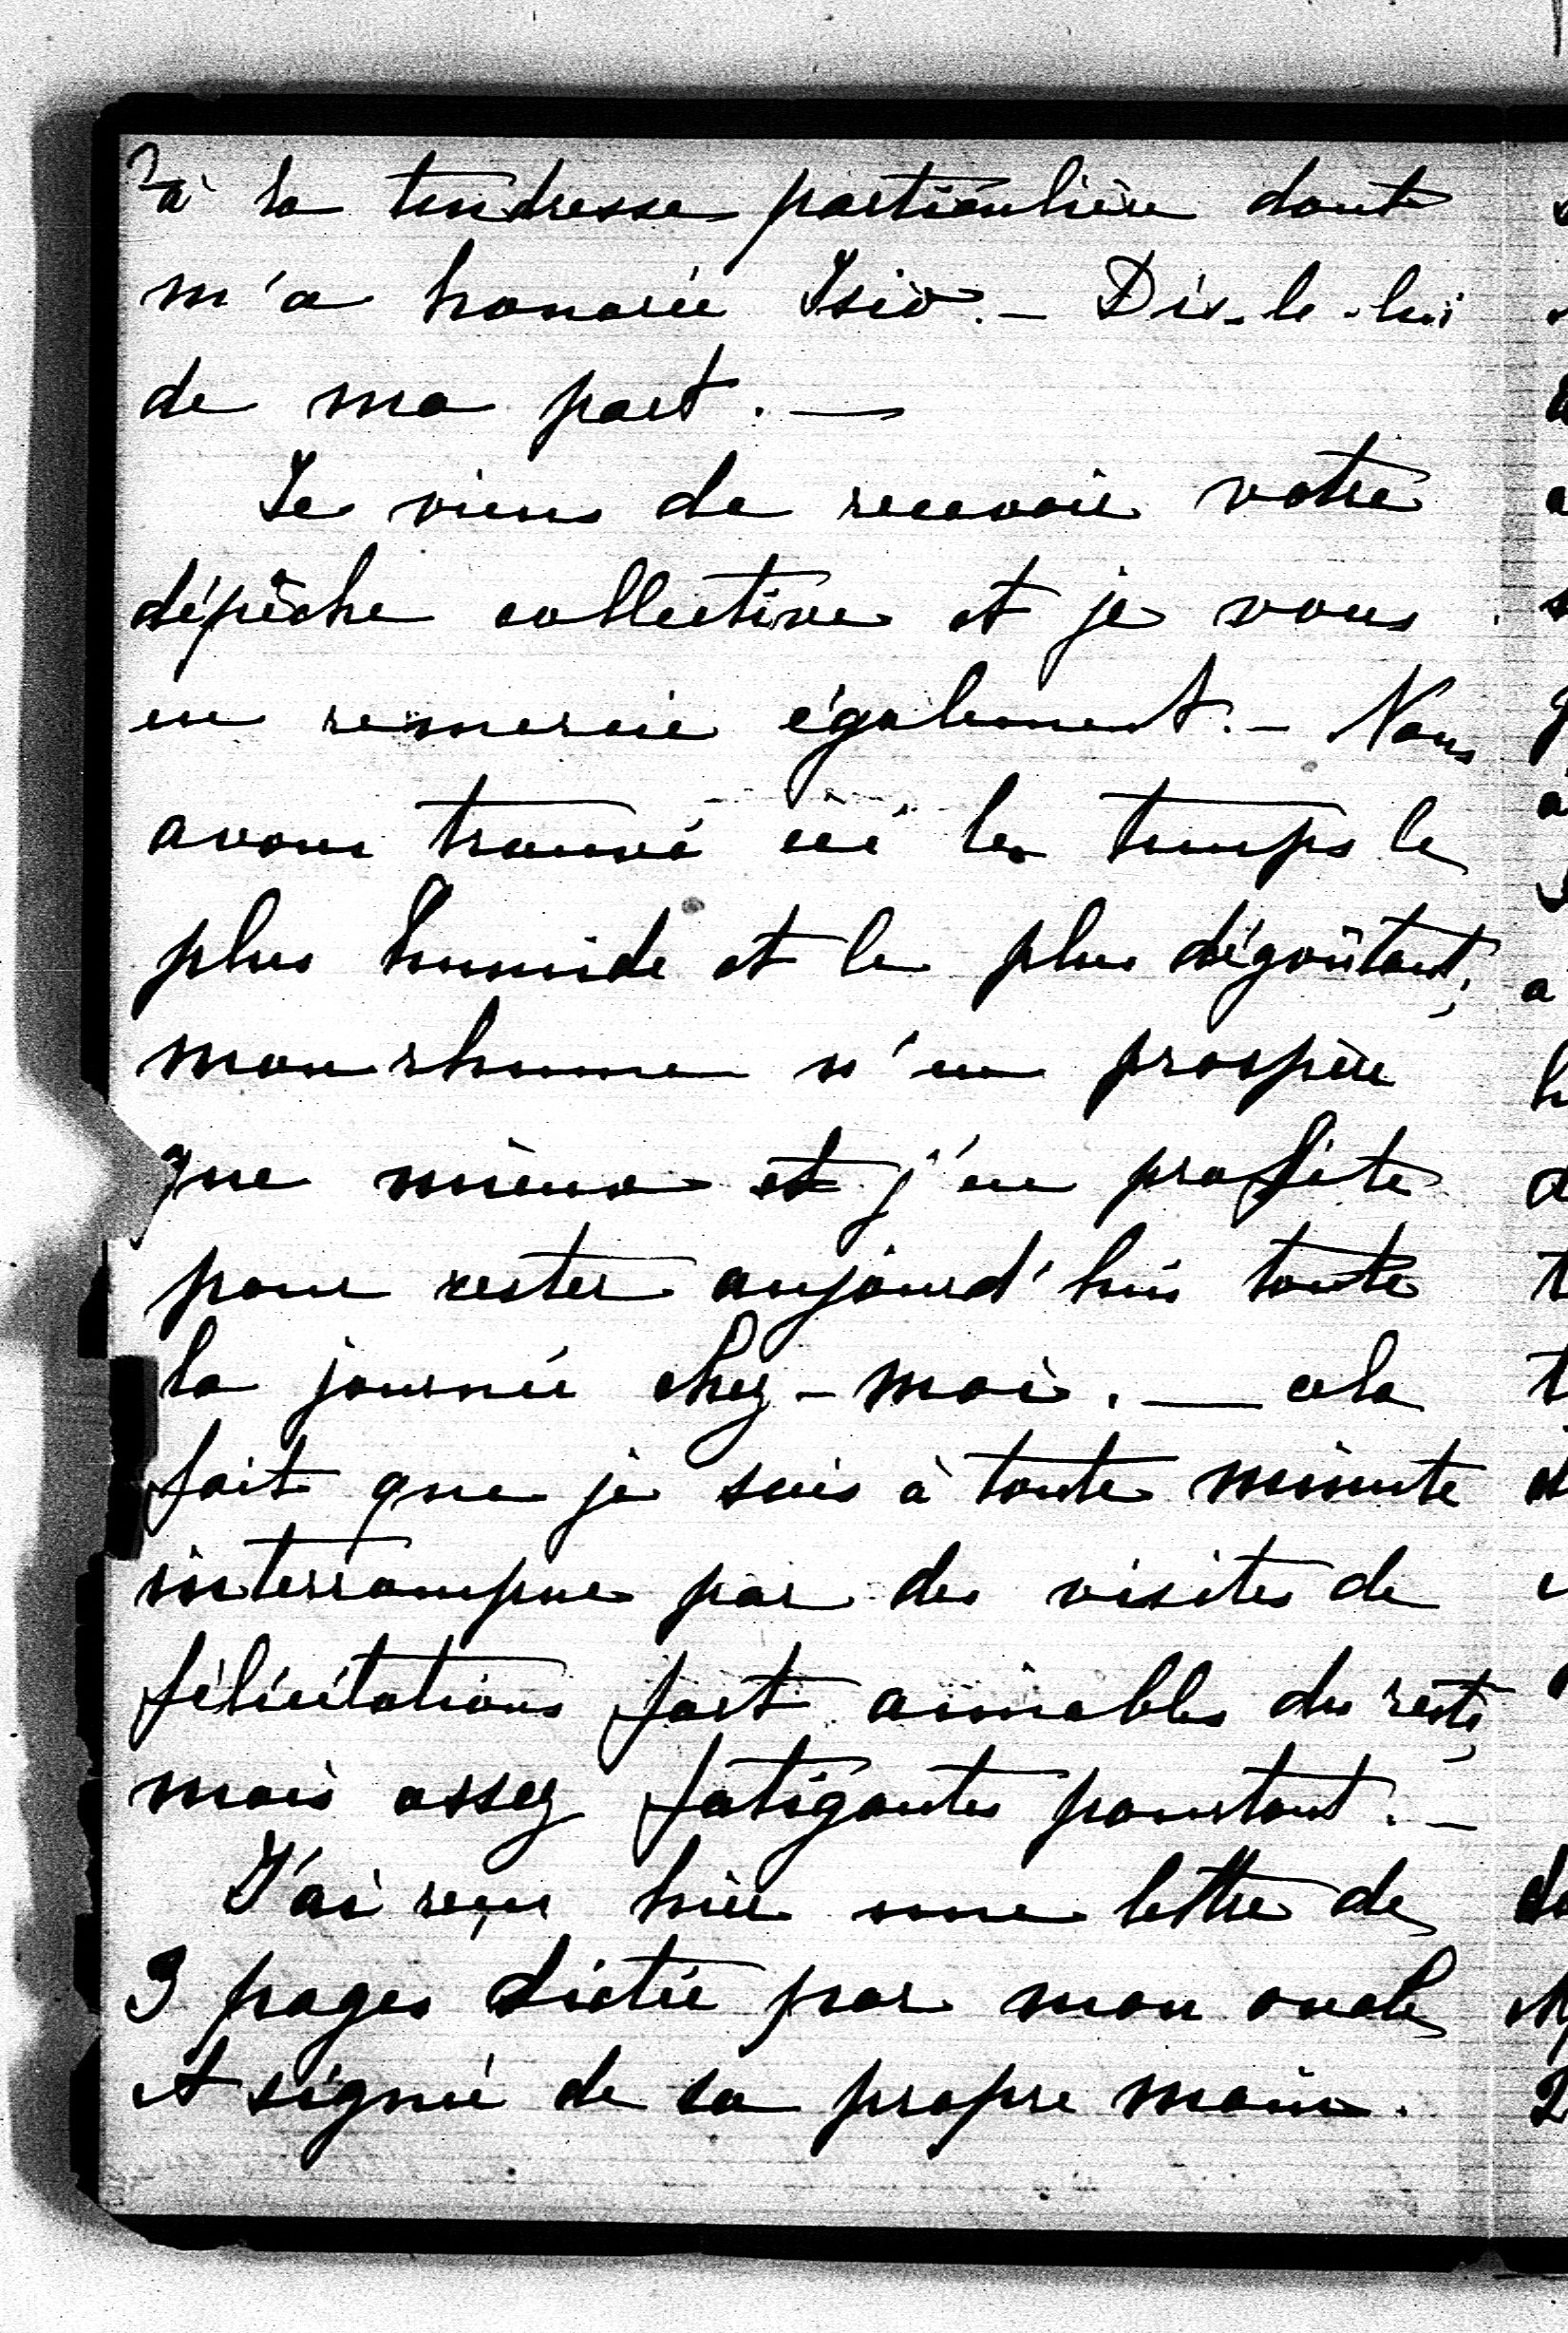 à la tendresse particulière dont
m'a honorée Isio. – Dis-le-lui
de ma part. —
Je viens de recevoir votre
dépêche collective et je vous
en remercie également. – Nous
avons trouvé ici le temps le
plus humide et le plus dégoûtant;
mon rhume n'en prospère
que mieux et j'en profite
pour rester aujourd'hui toute
la journée chez-moi. — cela
fait que je suis à toute minute
interrompue par des visites de
félicitations fort aimables du reste,
mais assez fatigantes pourtant. –
J'ai reçu hier une lettre de
3 pages dictée par mon oncle
et signée de sa propre main.